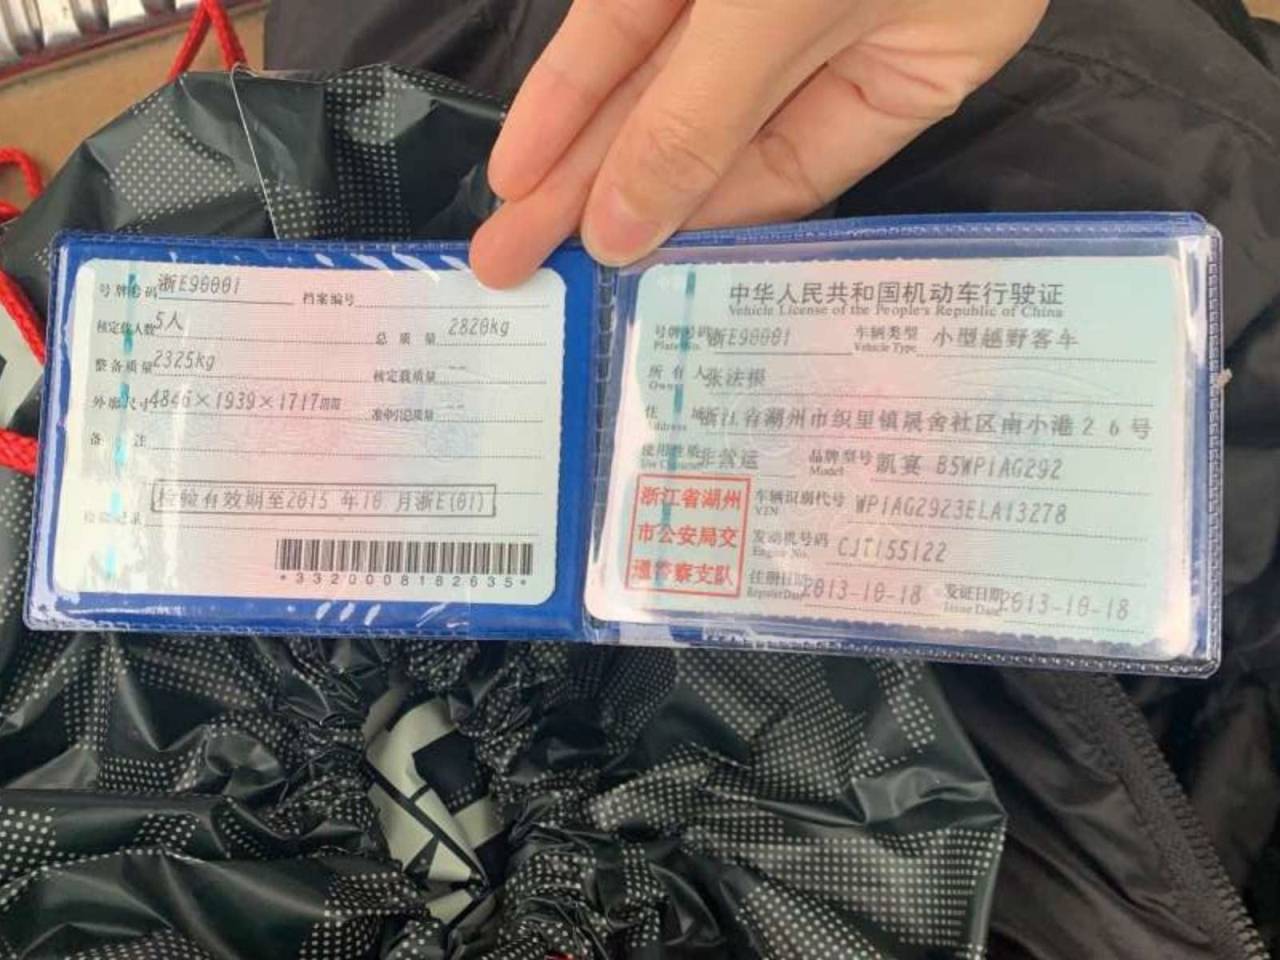 号牌号码 浙E90001 档案编号
核定载人数 5人 总质量 2820kg
整备质量 2325kg 核定载质量 --
外廓尺寸 4846×1939×1717mm 准牵引总质量 --
备注
检验有效期至2015 年10 月浙E(01)
检验记录
*3320008182635*
中华人民共和国机动车行驶证
Vehicle License of the People's Republic of China
号牌号码 浙E90001 车辆类型 小型越野客车
Plate No. Vehicle Type
所有人 张法根
Owner
住址 浙江省湖州市织里镇晟舍社区南小港26号
Address
使用性质 非营运 品牌型号 凯宴 B5WP1AG292
Use Character Model
浙江省湖州
市公安局交
通警察支队
车辆识别代号 WP1AG2923ELA13278
VIN
发动机号码 CJT155122
Engine No.
注册日期 2013-10-18 发证日期 2013-10-18
Register Date Issue Date